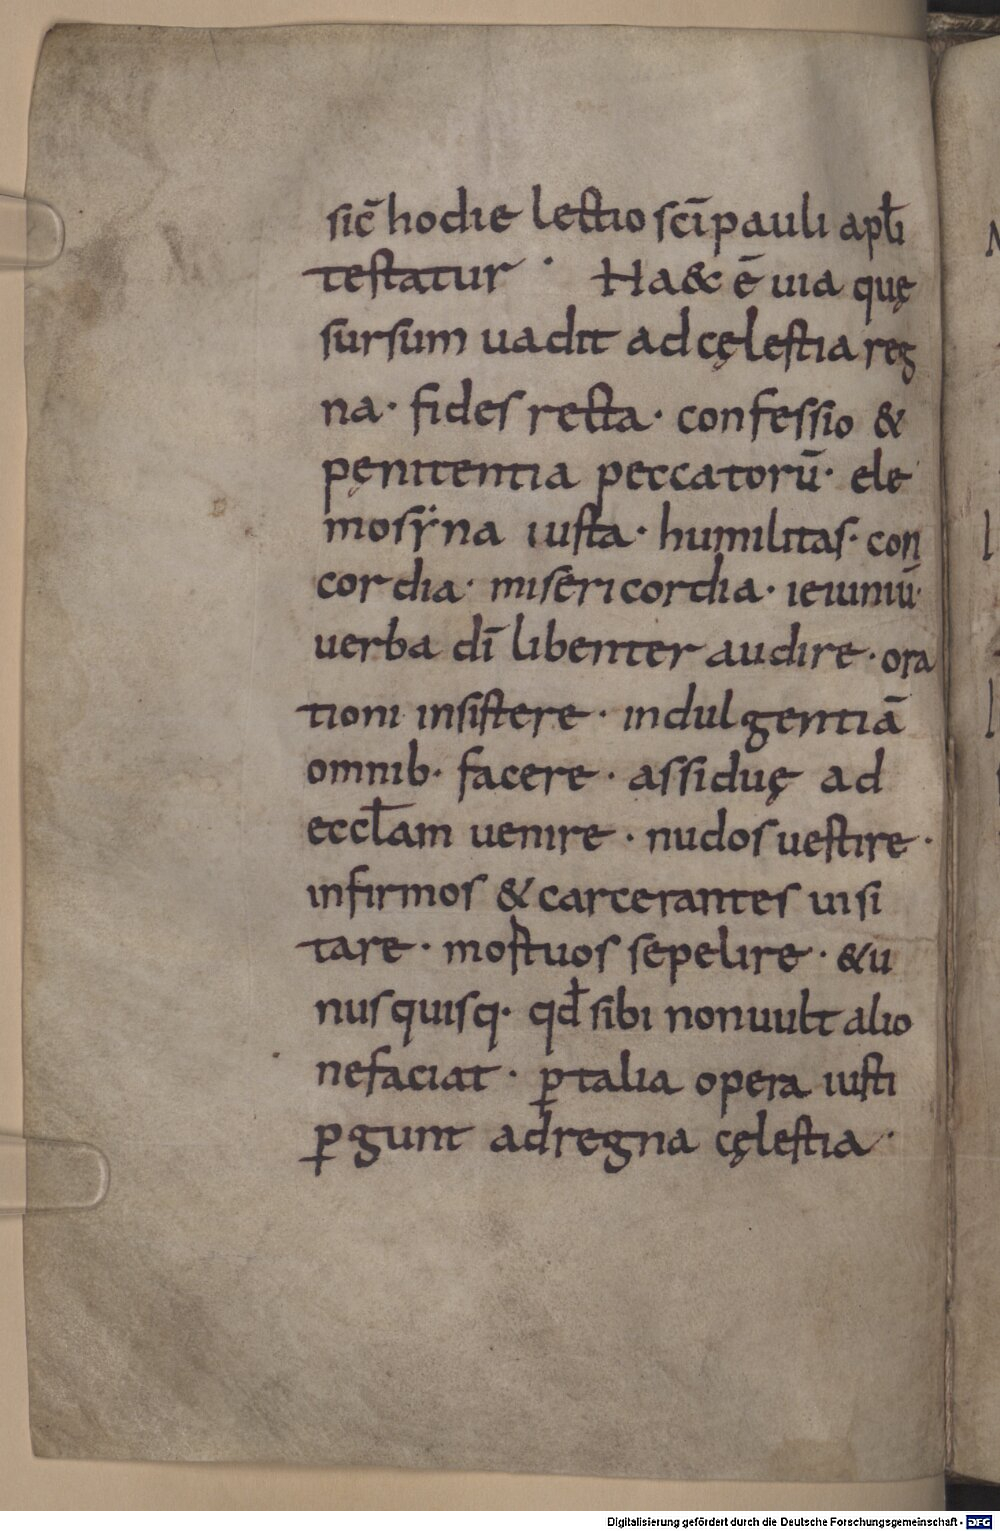 sic̄ hodie lectio sc̄i pauli apl̄i
testatur · Ha& ē uia quę
sursum uadit ad cęlestia reg
na · fides recta · confessio &
pęnitentia peccatorū · ele
mosẏna iusta · humilitas · con
cordia · misericordia · ieiuniū ·
uerba dī libenter audire · ora
tioni insistere · indulgentiā
omnib · facere · assiduę ad
eccl̄am uenire · nudos uestire ·
infirmos & carcerantes uisi
tare · mortuos sepelire · & u
nusquisq · qđ sibi non uult alio
ne faciat · p̱ talia opera iusti
p̱gunt ad regna cęlestia ·
Digitalisierung gefördert durch die Deutsche Forschungsgemeinschaft - DFG